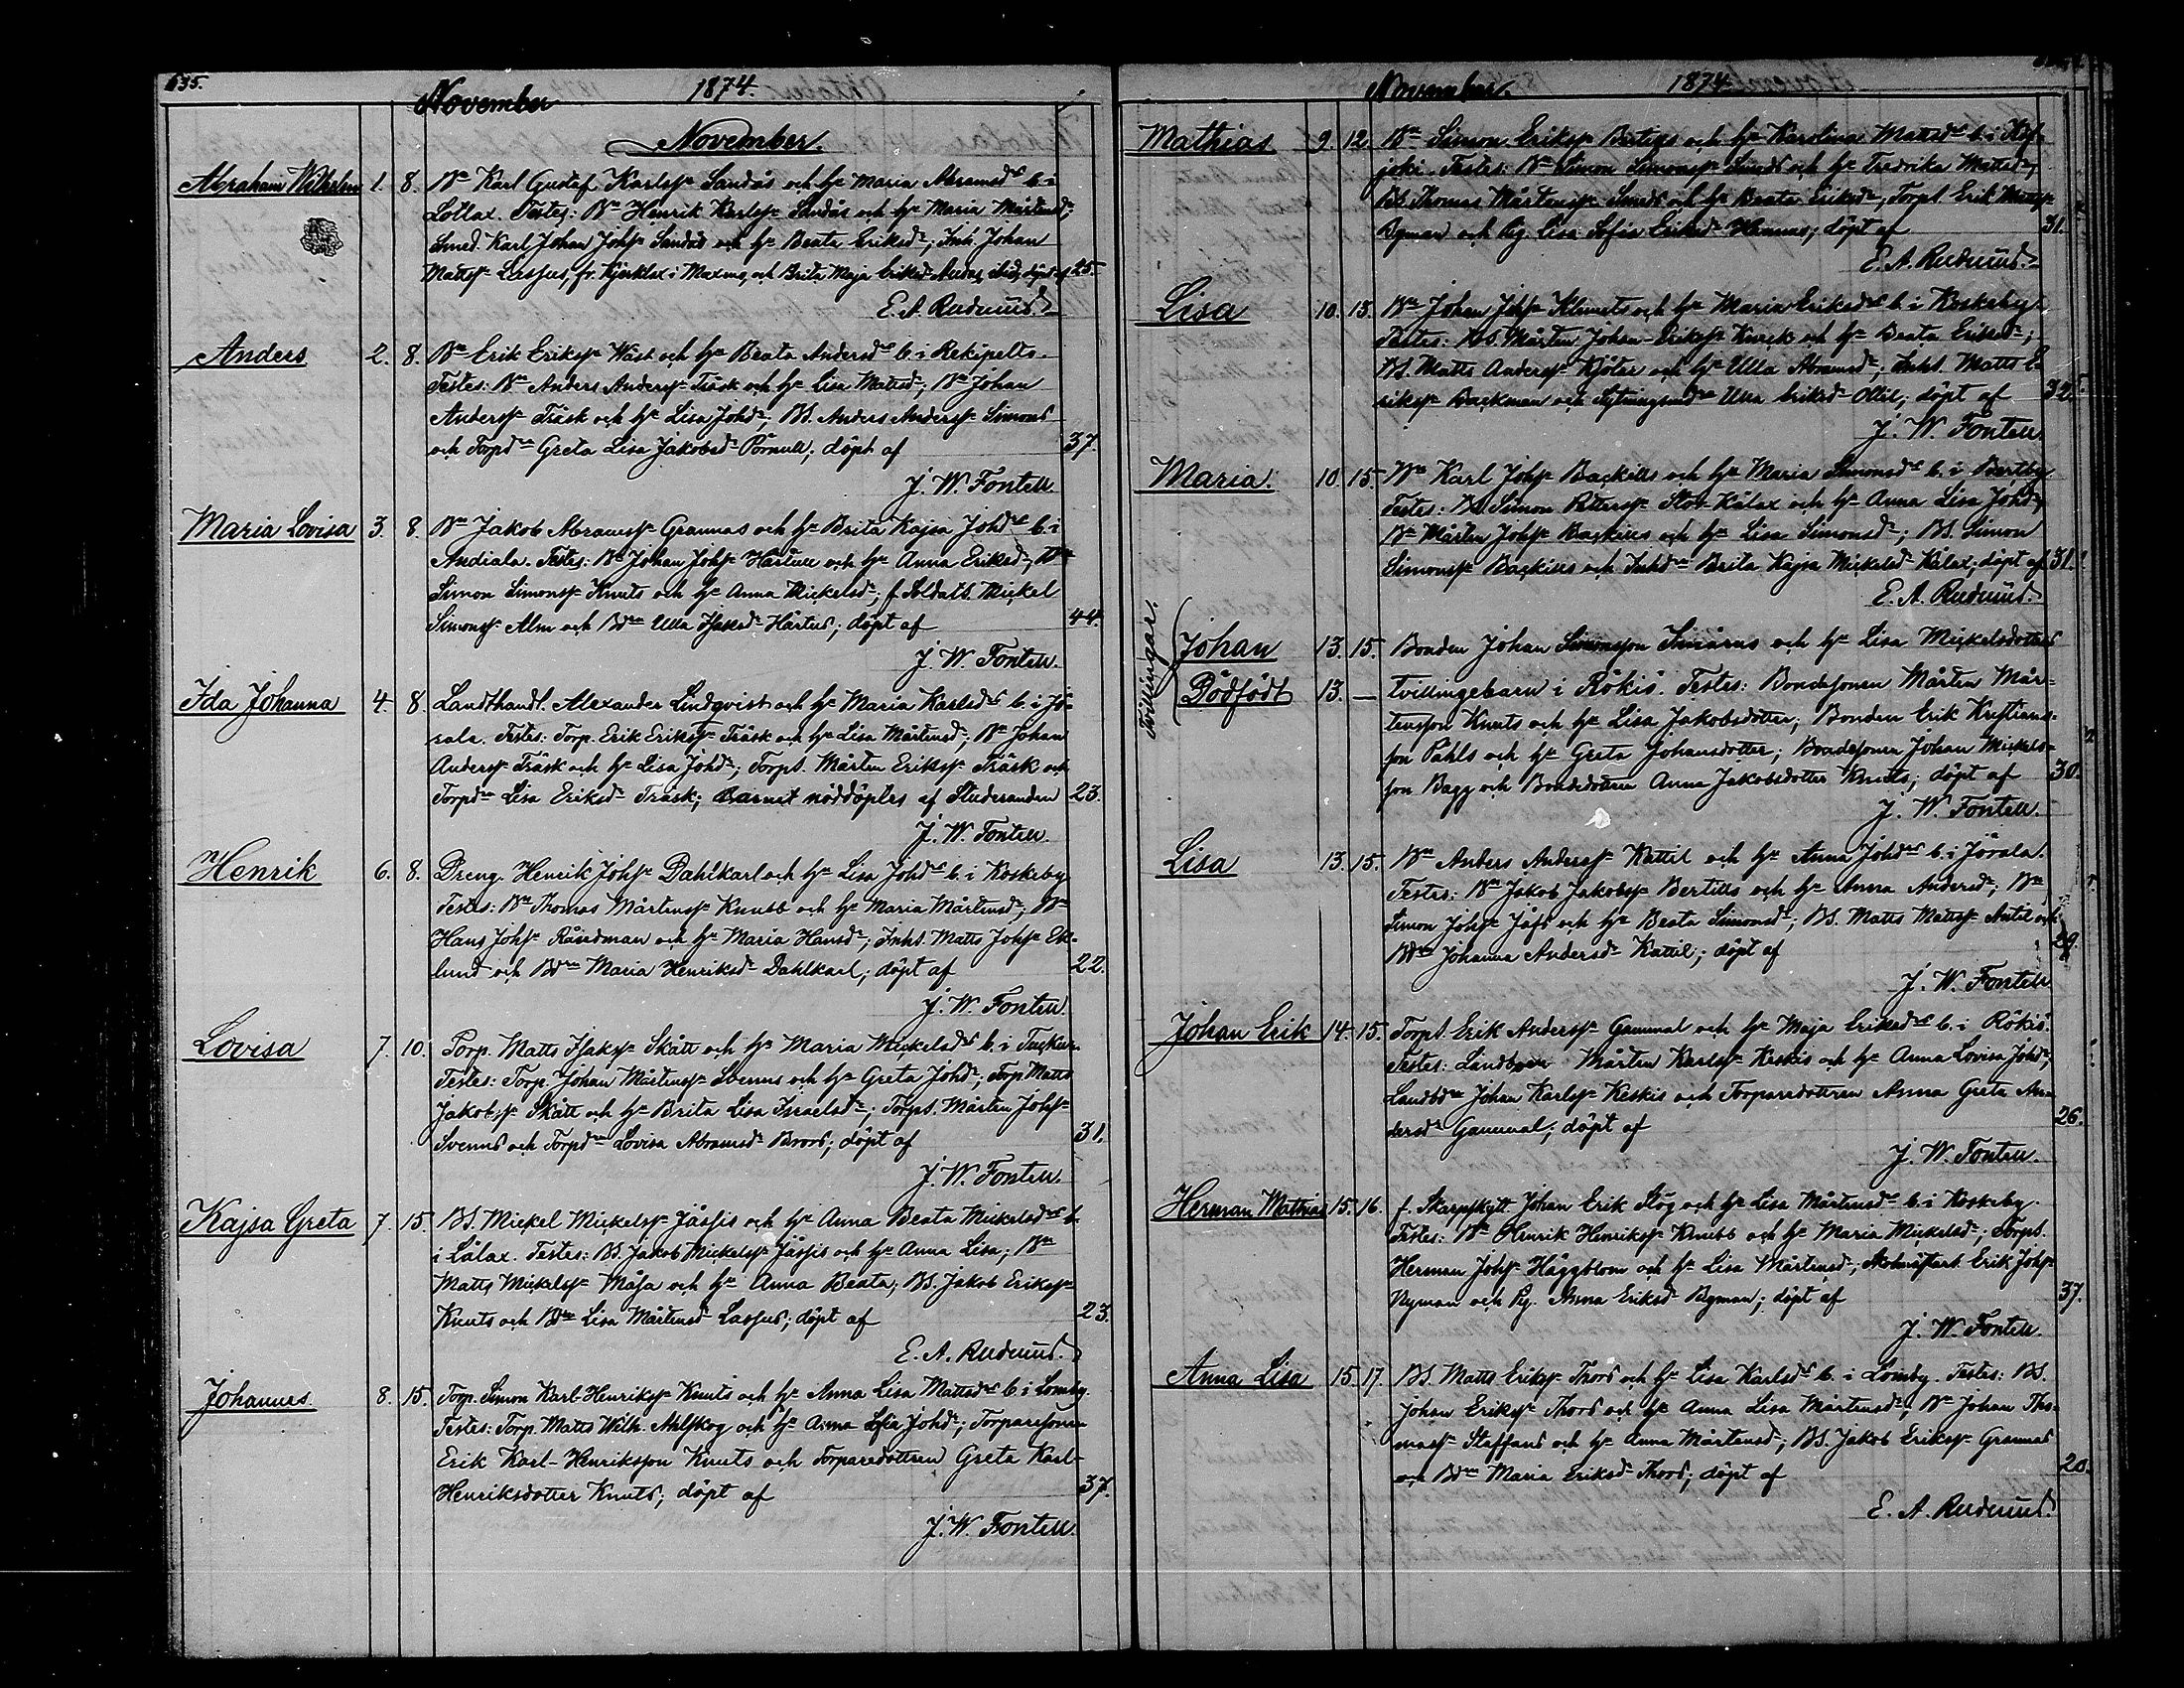 635.
November 1874.
November.
Abraham Wilhelm 1. 8. Bn Karl Gustaf Karlss: Sandås och h: Maria Abramsdr b. i
Lollax. Testes: Bn Henrik Karlss: Sandås och h: Maria Mårtensdr;
Smed. Karl Johan Johss: Sandås och h: Beata Eriksdr; Inh. Johan
Mattss: Lassus, fr. Kjerklax i Maxmo, och Brita Maja Eriksdr döpt af 25.
E. A. Rudnäs
Anders 2. 8. Bn Erik Erikss: Wäst och h: Beata Andersdr b. i Rekipelto.
Testes: Bn Anders Anderss: Träsk och h: Lisa Mattsdr; Bn Johan
Anderss: Träsk och h: Lisa Johdr; BS. Anders Anderss: Simons
och Torpdn Greta Lisa Jakobsdr Pörnull; döpt af 37.
J. W. Fontell.
Maria Lovisa 3. 8. Bn Jakob Abramss: Grannas och h: Brita Kajsa Johdr b. i
Andiala. Testes: Bn Johan Johss: Hartull och h: Anna Eriksdr; Bn
Simon Simonss: Knuts och h: Anna Mickelsdr; f. Soldats. Mickel
Simonss: Alm och Bdn Ulla Isaksdr Härtus; döpt af 44.
J. W. Fontell.
Ida Johanna 4. 8. Landthandl. Alexander Lindqvist och h: Maria Karlsdr b. i Jö-
rala. Testes: Torp. Erik Erikss: Träsk och h: Lisa Mårtensdr; Bn Johan
Anderss: Träsk och h: Lisa Johdr; Torps. Mårten Erikss: Träsk och
Torpdn Lisa Eriksdr Träsk; Barnet nöddöptes af Studeranden 23.
J. W. Fontell.
Henrik 6. 8. Dreng. Henrik Johss: Dahlkarl och h: Lisa Johdr b. i Koskeby
Testes: Bn Thomas Mårtenss: Knubb och h: Maria Mårtensdr; Bn
Hans Johss: Råndman och h: Maria Hansdr; Inhs. Matts Johss: Ek-
lund och Bdn Maria Henriksdr Dahlkarl; döpt af 22.
J. W. Fontell.
Lovisa 7. 10. Torp. Matts Isakss: Skått och h: Maria Mickelsdr b. i Tuckur.
Testes: Torp. Johan Mårtenss: Svenns och h: Greta Johdr; Torp. Matts
Jakobss: Skått och h: Brita Lisa Israelsdr; Torps. Mårten Johss:
Svenns och Torpdn Lovisa Abramsdr Brors; döpt af 31.
J. W. Fontell.
Kajsa Greta 7. 15. BS. Mickel Mickelss: Jåssis och h: Anna Beata Mickelsdr b.
i Lålax. Testes: BS. Jakob Mickelss: Jåssis och h: Anna Lisa; Bn
Matts Mickelss: Måsa och h: Anna Beata; BS. Jakob Erikss:
Knuts och Bdn Lisa Mårtensdr Lassus; döpt af 23.
E. A. Rudnäs.
Johannes. 8. 15. Torp. Simon Karl-Henrikss: Knuts och h: Anna Lisa Mattsdr b. i Lomby.
Testes: Torp. Matts Wilh. Ahlskog och h: Anna Sofia Johdr; Torparesonen
Erik Karl-Henriksson Knuts och Torparedottren Greta Karl-
Henriksdotter Knuts; döpt af 37.
J. W. Fontell.
November. 1874.
Mathias 9. 12. Bn Simon Erikss: Bertills och h: Karolina Mattsdr b. i Kyf-
joki. Testes: Bn Simon Simonss: Smeds och h: Fredrika Mattsdr;
BS. Thomas Mårtenss: Smeds och h: Beata Eriksdr; Torps. Erik Mattss:
Byman och Pig. Lisa Sofia Eriksdr Hannus; döpt af 31.
E. A. Rudnäs.
Lisa 10. 15. Bn Johan Johss: Klemets och h: Maria Eriksdr b. i Koskeby.
Testes: BS. Mårten Johan-Erikss: Knuck och h: Beata Eriksdr;
BS. Matts Anderss: Kjölar och h: Ulla Abramsdr; Inhs. Matts E-
rikss: Backman och Sytningsmdn Ulla Eriksdr Ollil; döpt af 32.
J. W. Fontell.
Maria. 10. 15. Bn Karl Johss: Backills och h: Maria Simonsdr b. i Bertby
Testes: BS. Simon Petterss: Stor Kålax och h: Anna Lisa Johdr;
Bn Mårten Johss: Backills och h: Lisa Simonsdr; BS. Simon
Simonss: Backills och Inhdn Brita Kajsa Mickelsdr Kålax; döpt af 31.
E. A. Rudnäs.
Tvillingar.
Johan 13. 15. Bonden Johan Simonsson Smärus och h: Lisa Mickelsdotters
Dödfödt 13. — tvillingebarn i Rökiö. Testes: Bondesonen Mårten Mår-
tensson Knuts och h: Lisa Jakobsdotter; Bonden Erik Kristians-
son Påhls och h: Greta Johansdotter; Bondesonen Johan Mickels-
son Bagg och Bondedottren Anna Jakobsdotter Knuts; döpt af 30.
J. W. Fontell.
Lisa 13. 15. Bn Anders Anderss: Kattil och h: Anna Johdrs b. i Jörala.
Testes: Bn Jakob Jakobss: Bertills och h: Anna Andersdr; Bn
Simon Johss: Jåfs och h: Beata Simonsdr; BS. Matts Mattss: Antil och
Bdn Johanna Andersdr Kattil; döpt af 29.
J. W. Fontell.
Johan Erik 14. 15. Torps. Erik Anderss: Gammal och h: Maja Eriksdr b. i Rökiö.
Testes: Landbon Mårten Karlss: Keskis och h: Anna Lovisa Johdr;
Landbdn Johan Karlss: Keskis och Torparedottren Anna Greta An-
dersdr Gammal; döpt af 26.
J. W. Fontell.
Herman Mathias 15. 16. f. Skarpskytt. Johan Erik Stög och h: Lisa Mårtensdr b. i Koskeby.
Testes: Bn Henrik Henrikss: Knubb och h: Maria Mickelsdr; Torps.
Herman Johss: Häggblom och h: Lisa Mårtensdr; Erik Johss:
Nyman och Pig. Anna Eriksdr Byman; döpt af 37.
J. W. Fontell.
Anna Lisa 15. 17. BS. Matts Erikss: Thors och h: Lisa Karlsdr b. i Lomby. Testes: BS.
Johan Erikss: Thors och h: Anna Lisa Mårtensdr; Bn Johan Tho-
mass: Staffans och h: Anna Mårtensdr; BS. Jakob Erikss: Grannas
och Bdn Maria Eriksdr Thors; döpt af 20.
E. A. Rudnäs.